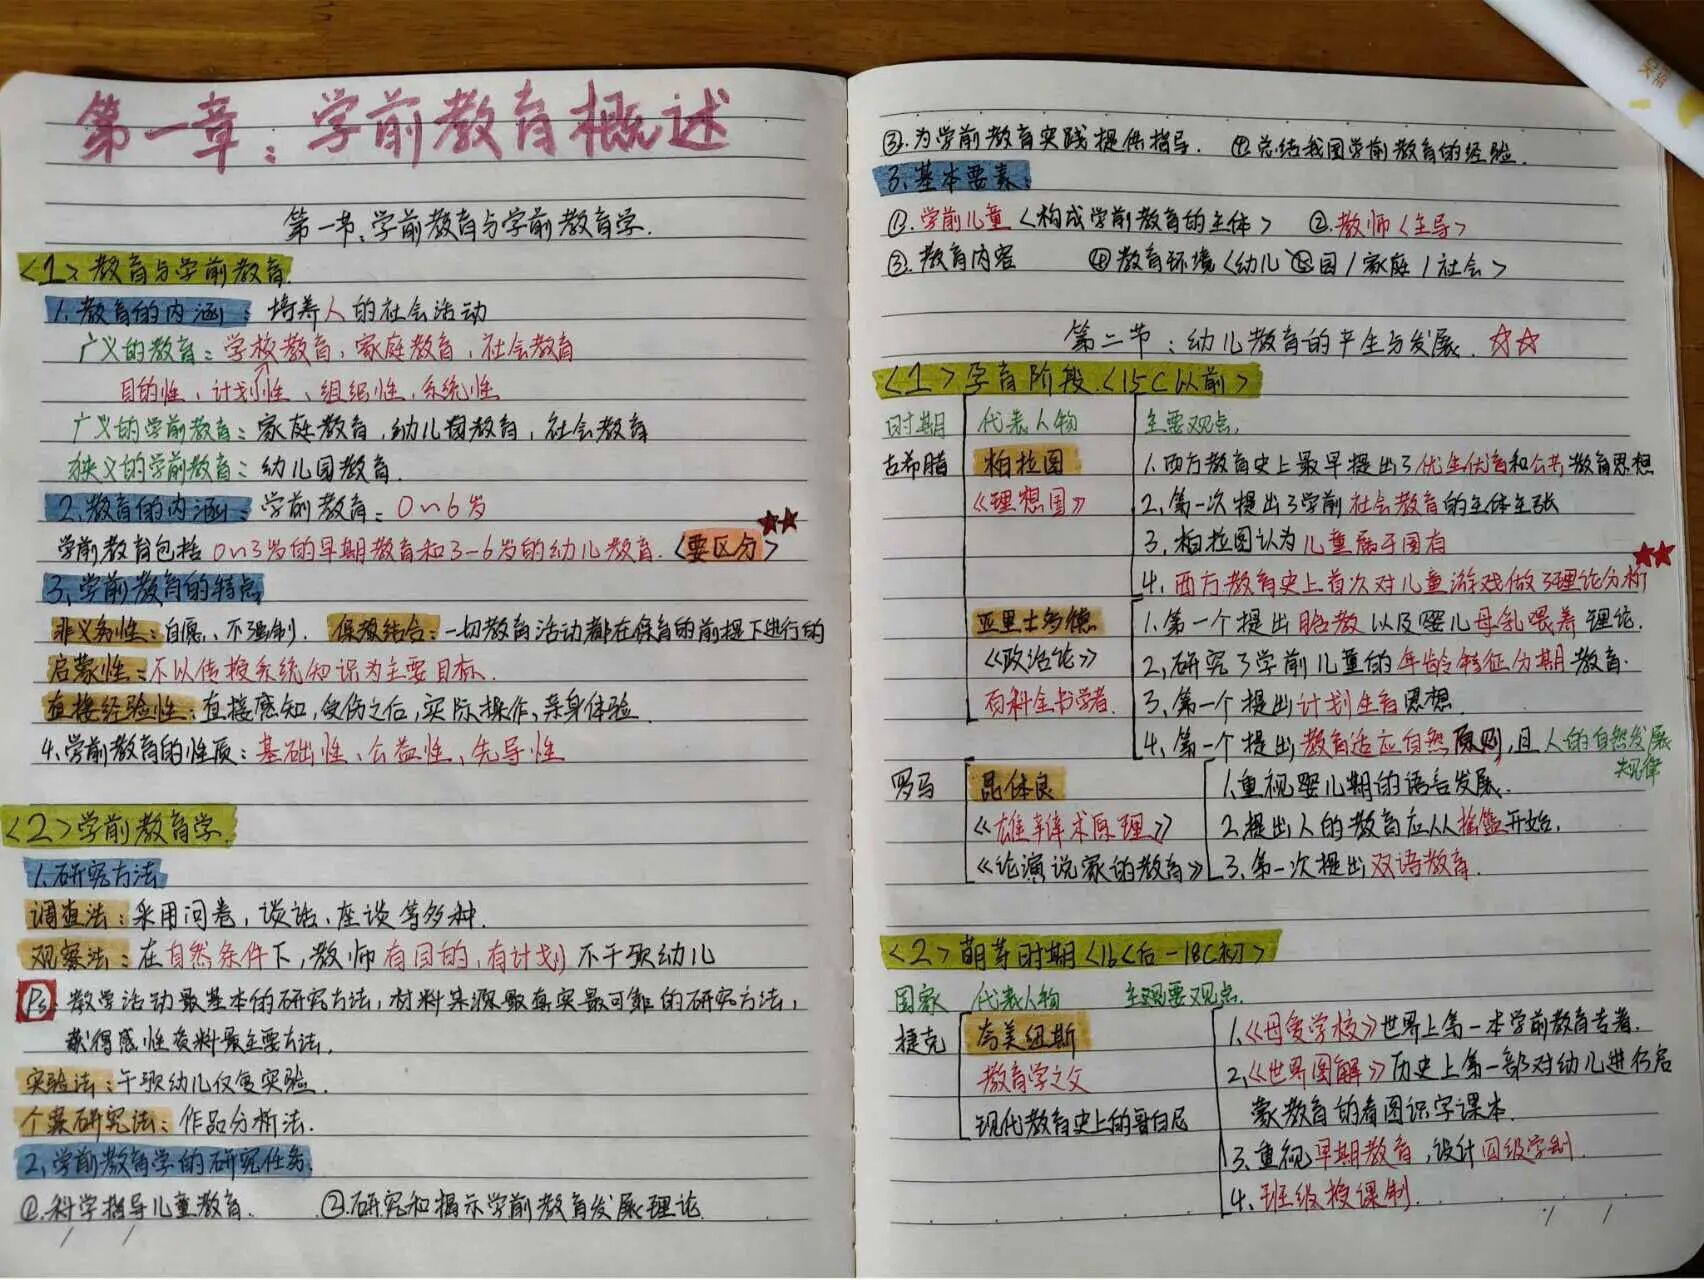 第一章：学前教育概述
第一节：学前教育与学前教育学.
<1>教育与学前教育.
1.教育的内涵：培养人的社会活动
广义的教育：学校教育、家庭教育、社会教育
目的性、计划性、组织性、系统性
广义的学前教育：家庭教育，幼儿园教育，社会教育
狭义的学前教育：幼儿园教育.
2.教育的内涵：学前教育：0~6岁
学前教育包括0~3岁的早期教育和3-6岁的幼儿教育.<要区分>
3、学前教育的特点
非义务性：自愿、不强制. 保教结合：一切教育活动都在保育的前提下进行的
启蒙性：不以传授系统知识为主要目标.
直接经验性：直接感知，实际操作、亲身体验.
4.学前教育的性质：基础性、公益性、先导性
<2>学前教育学.
1.研究方法
调查法：采用问卷，谈话、座谈等多种.
观察法：在自然条件下，教师有目的，有计划不干预幼儿
Ps 教学活动最基本的研究方法，材料来源最真实最可靠的研究方法，
获得感性资料最主要方法.
实验法：干预幼儿仅复实验.
个案研究法：作品分析法.
2.学前教育学的研究任务：
①.科学指导儿童教育. ②研究和揭示学前教育发展理论
③.为学前教育实践提供指导. ④总结我国学前教育的经验.
3.基本要素：
①.学前儿童<构成学前教育的主体> ②.教师<主导>
③.教育内容 ④教育环境<幼儿园/家庭/社会>
第二节：幼儿教育的产生与发展.
<1>孕育阶段.<15C以前>
时期 代表人物 主要观点.
古希腊 柏拉图 1.西方教育史上最早提出了优生优育和公共教育思想
《理想国》 2.第一次提出了学前社会教育的主体主张
3.柏拉图认为儿童属于国有
4.西方教育史上首次对儿童游戏做了理论分析
亚里士多德 1.第一个提出胎教以及婴儿母乳喂养理论.
《政治论》 2.研究了学前儿童的年龄特征分期教育.
百科全书学者. 3.第一个提出计划生育思想.
4.第一个提出教育适应自然原则，且人的自然发展
规律
罗马 昆体良 1.重视婴儿期的语言发展.
《雄辩术原理》 2.提出人的教育应从摇篮开始.
《论演说家的教育》 3.第一次提出双语教育.
<2>萌芽时期<16C后-18C初>
国家 代表人物 主观要观点.
捷克 夸美纽斯 1.《母爱学校》世界上第一本学前教育专著.
教育学之父 2.《世界图解》历史上第一部对幼儿进行启
现代教育史上的哥白尼 蒙教育的看图识字课本.
3.重视早期教育，设计四级学制.
4.班级授课制.